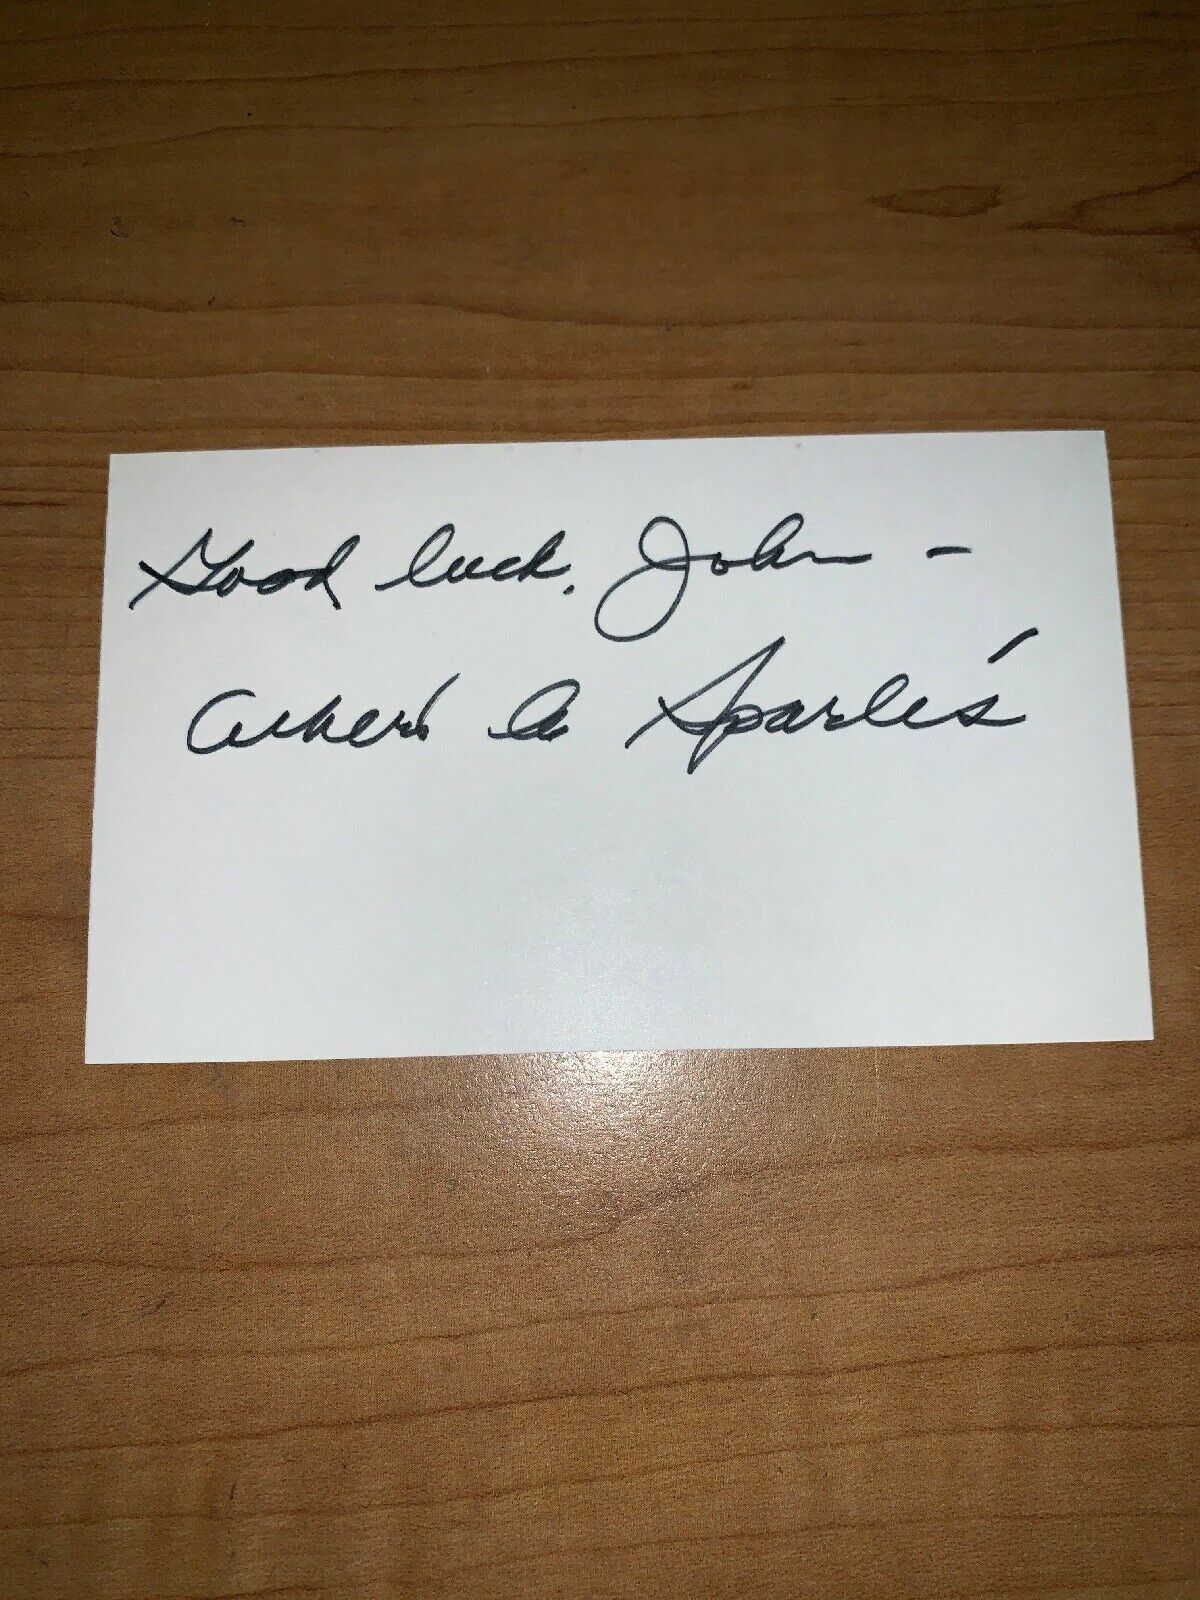 Good luck, John -
Albert G. Sparlis